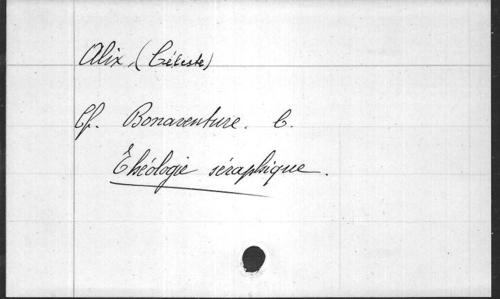 Alix, (Céleste)
Cf. Bonaventure. C.
Théologie séraphique.